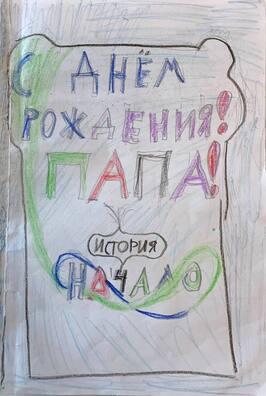 С ДНЁМ
РОЖДЕНИЯ!
ПАПА!
ИСТОРИЯ
НАЧАЛО